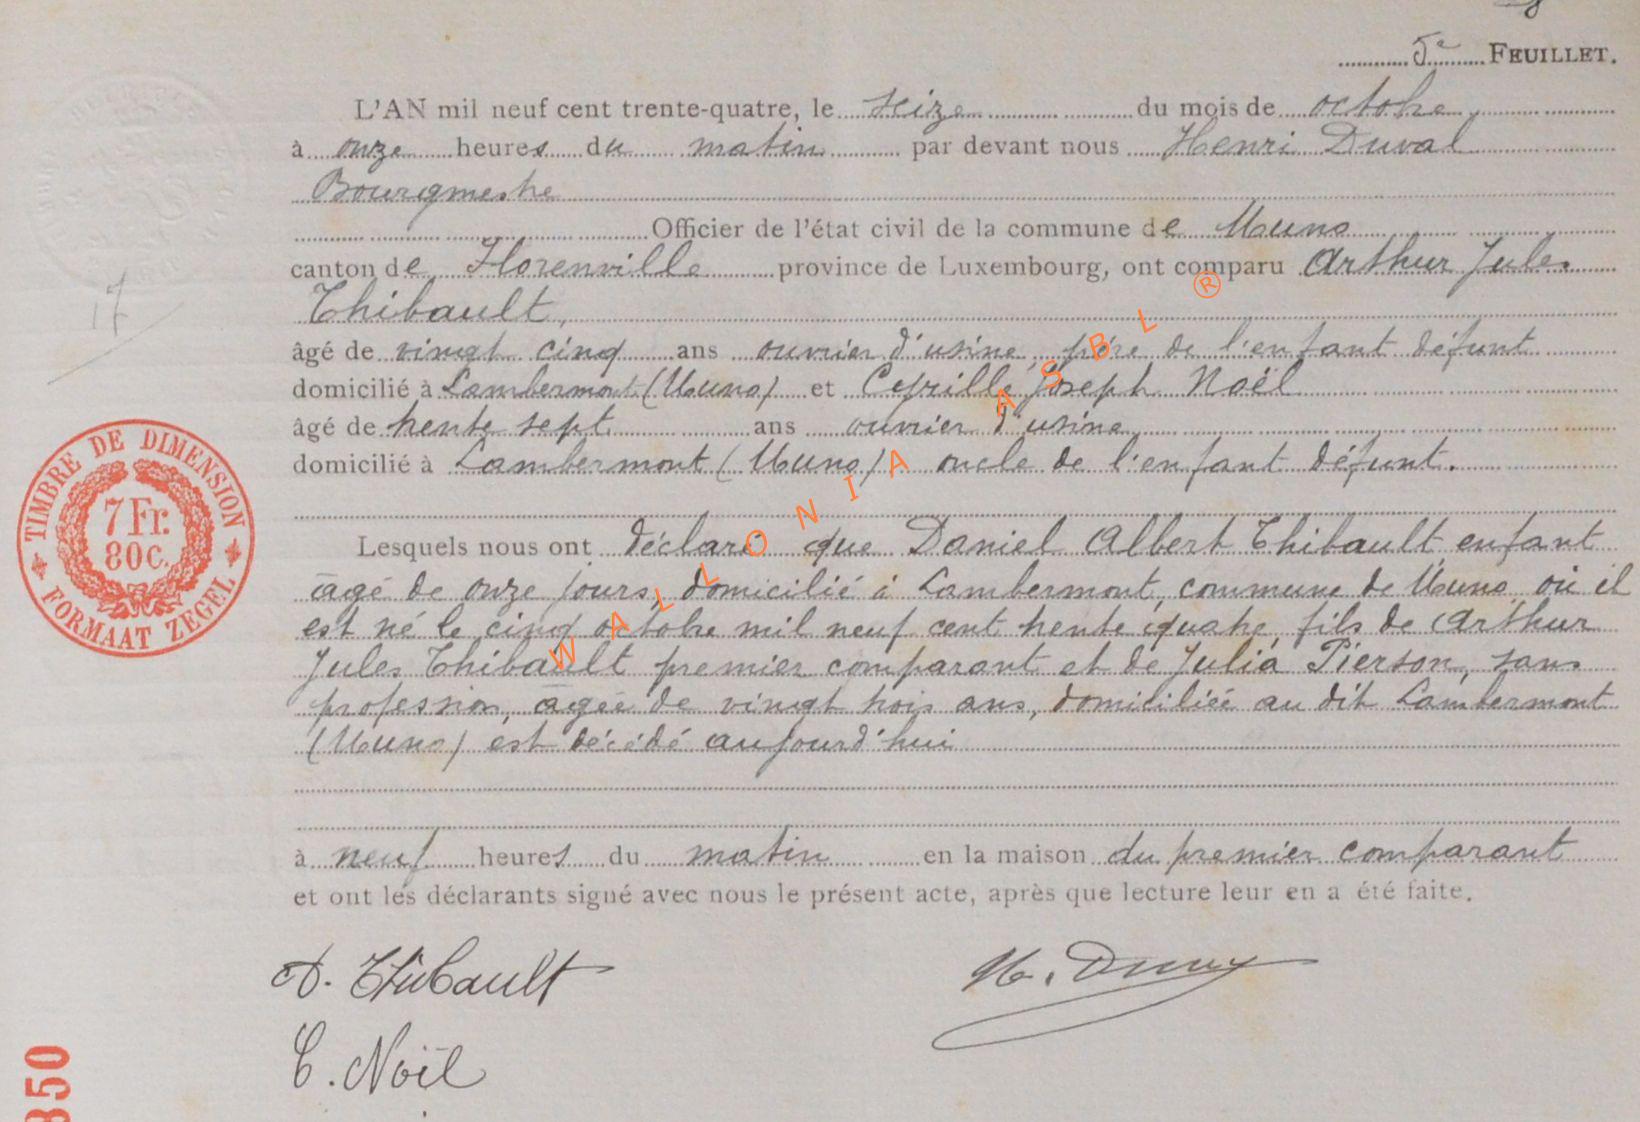 5e FEUILLET.
L'AN mil neuf cent trente-quatre, le seize du mois de octobre
à onze heures du matin par devant nous Henri Duval
Bourgmestre
Officier de l'état civil de la commune de Muno
17
canton de Florenville province de Luxembourg, ont comparu Arthur Jules
Thibault,
âgé de vingt cinq ans ouvrier d'usine, père de l'enfant défunt
domicilié à Lambermont (Muno) et Cyrille Joseph Noël
âgé de trente sept ans ouvrier d'usine
domicilié à Lambermont (Muno) oncle de l'enfant défunt.
Lesquels nous ont déclaré que Daniel Albert Thibault, enfant
âgé de onze jours, domicilié à Lambermont, commune de Muno, où il
est né le cinq octobre mil neuf cent trente quatre, fils de Arthur
Jules Thibault premier comparant et de Julia Pierson, sans
profession, âgée de vingt trois ans, domiciliée au dit Lambermont
(Muno) est décédé aujourd'hui
à neuf heures du matin en la maison du premier comparant
et ont les déclarants signé avec nous le présent acte, après que lecture leur en a été faite.
A. Thibault
H. Duval
C. Noël
TIMBRE DE DIMENSION
7 Fr.
80 C.
FORMAAT ZEGEL
850
WALLONIA ASBL ®